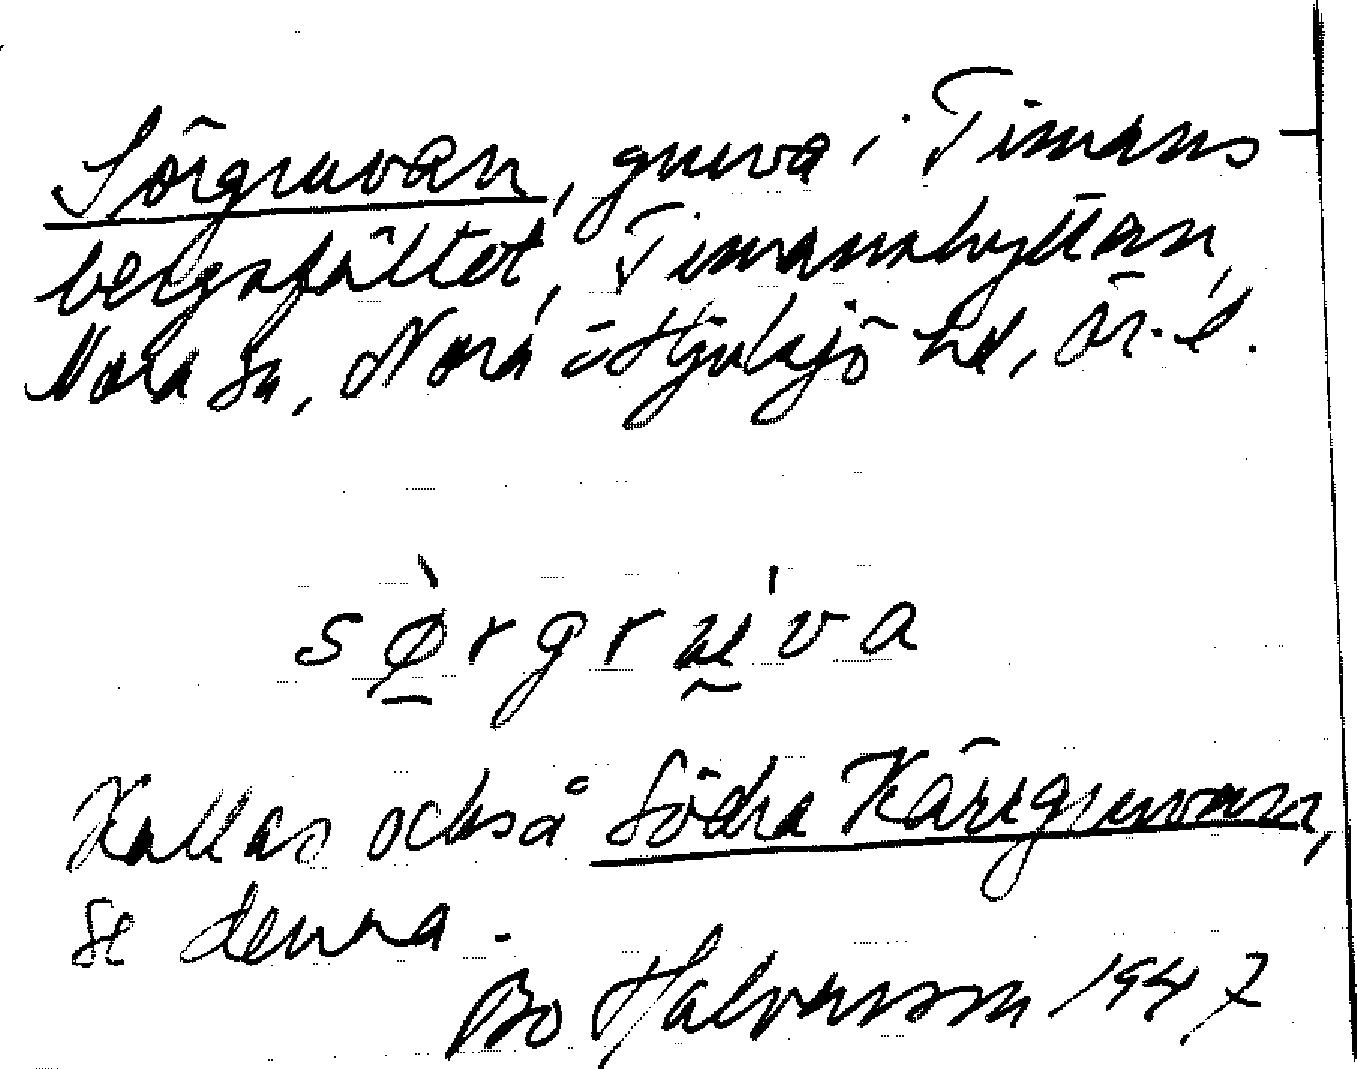 Sörgruvan, gruva i Timans-
bergsfältet, Timanshyttan,
Nora sn, Nora o Hjulsjö hd, Ör. l.
sø̀rgrʉ́va
Kallas också Södra Kärrgruvan,
se denna.
Bo Halvarsson 1947